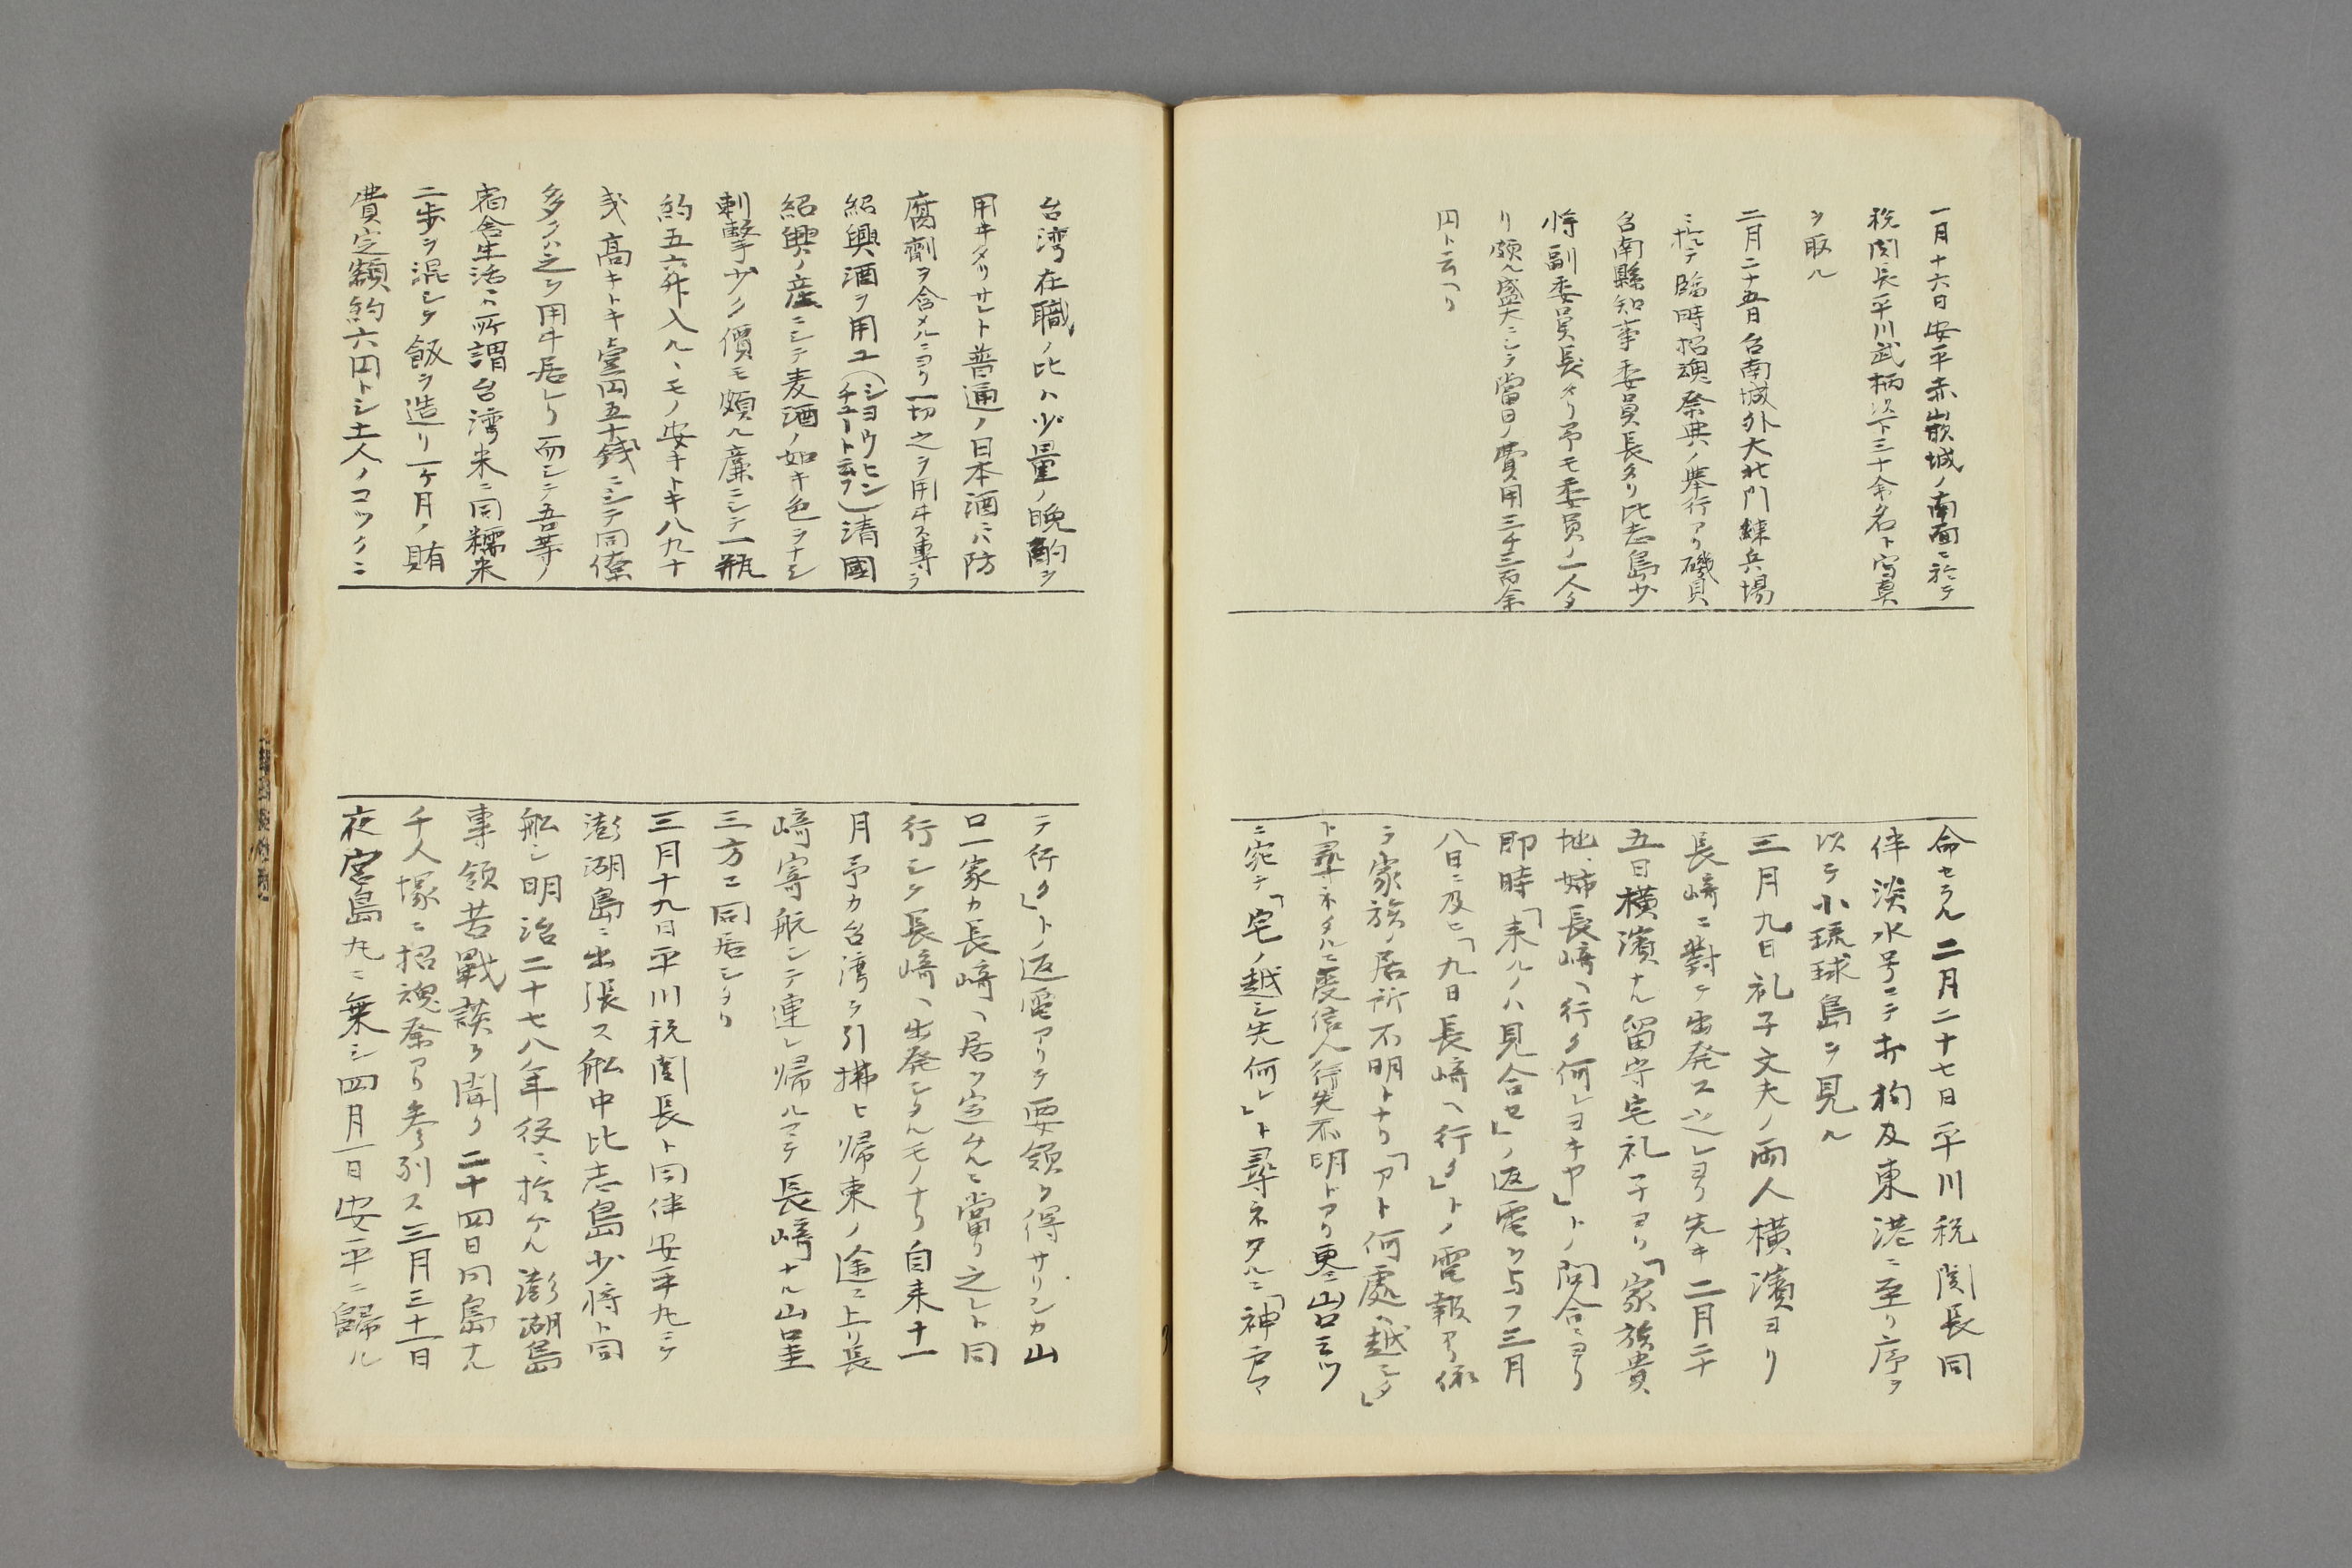 一月十六日安平赤嵌城ノ南面ニ於テ
税関長平川武柄以下三十余名ト写真
ヲ取ル
二月二十五日台南城外大北門練兵場
ニ於テ臨時招魂祭典ノ挙行アリ磯貝
台南縣知事委員長タリ比志島少
将副委員長タリ予モ委員ノ一人タ
リ頗ル盛大ニシテ當日ノ費用三千三百余
円ト云ヘリ
命セラル二月二十七日平川税関長同
伴淡水号ニテ打狗及東港ニ至リ序ヲ
以テ小琉球島ヲ見ル
三月九日礼子文夫ノ両人横濱ヨリ
長崎ニ對テ出発ス之レヨリ先キ二月二十
五日横濱ナル留守宅礼子ヨリ「家族貴
地、姉長崎ヘ行ク何レヨキヤ」トノ問合ニヨリ
即時「来ルノハ見合セ」ノ返電ヲ与フ三月
八日ニ及ヒ「九日長崎ヘ行ク」トノ電報アリ依
テ家族ノ居所不明トナリ「アト何處ヘ越シタ」
ト尋ネタルニ受信人行先不明トアリ更ニ山口ミツ
ニ宛テ「宅ノ越シ先何レ」ト尋ネタルニ「神戸マ
台湾在職ノ比ハ少量ノ晩酌ヲ
用ヰタリサレト普通ノ日本酒ニハ防
腐劑ヲ含メルニヨリ一切之ヲ用ヰス專ラ
紹興酒ヲ用ユ(シヨウヒン
チユートモ云フ)清國
紹興ノ産ニシテ麦酒ノ如キ色ヲナシ
刺撃少ク價モ頗ル廉ニシテ一瓶
約五六升入ル、モノ安キトキ八九十
戔高キトキ壹円五十錢ニシテ同僚
多クハ之ヲ用ヰ居レリ而シテ吾等ノ
宿舎生活ハ所謂台湾米ニ同糯米
二歩ヲ混シテ飯ヲ造リ一ケ月ノ賄
費定額約六円トシ土人ノコックニ
テ行ク」トノ返電アリテ要領ヲ得サリシカ山
口一家カ長崎ヘ居ヲ定ムルニ當リ之レト同
行シテ長崎ヘ出発シタルモノナリ自来十一
月予カ台湾ヲ引拂ヒ帰東ノ途ニ上リ長
崎寄航シテ連レ帰ルマテ長崎ナル山口圭
三方ニ同居シタリ
三月十九日平川税関長ト同伴安平丸ニテ
澎湖島ニ出張ス舩中比志島少将ト同
舩シ明治二十七八年役ニ於ケル澎湖島
事領苦戰談ヲ聞ク二十四日同島ナル
千人塚ニ招魂祭アリ参列ス三月三十一日
夜宮島丸ニ乗シ四月一日安平ニ歸ル